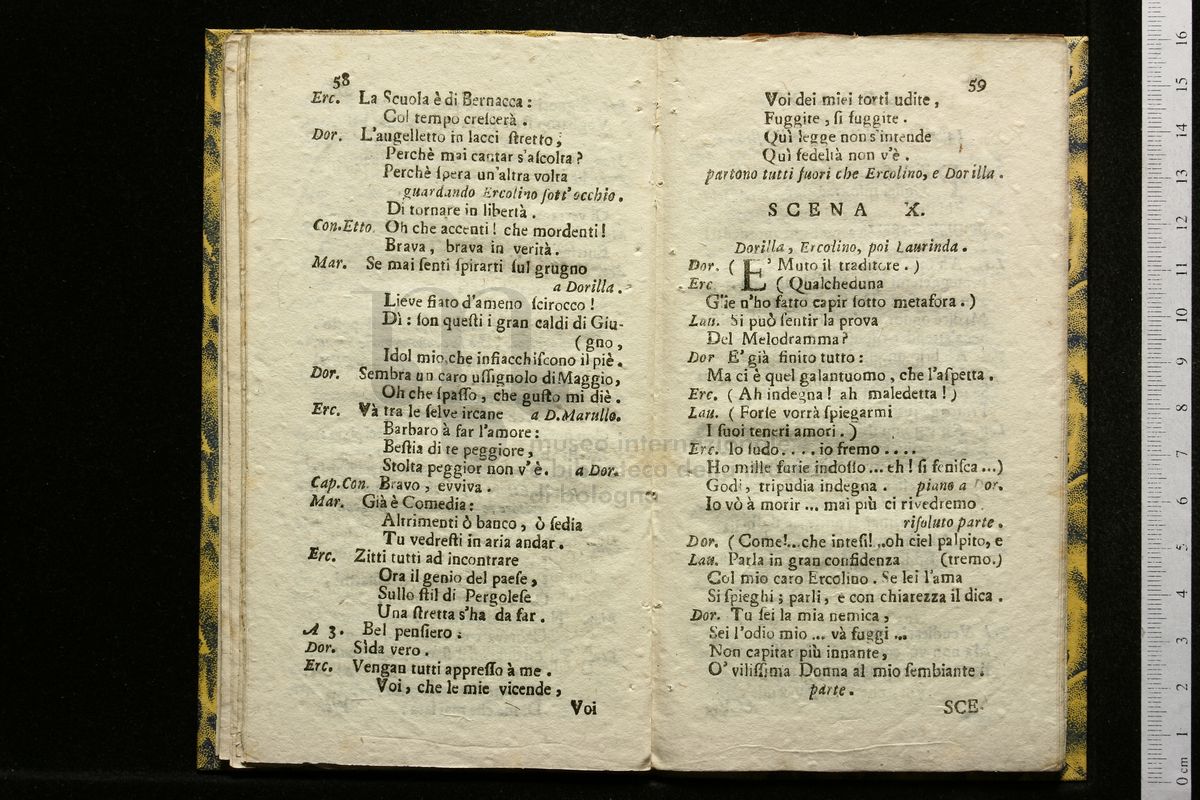 58
Erc. La Scuola è di Bernacca:
Col tempo creſcerà.
Dor. L'augelletto in lacci ſtretto,
Perchè mai cantar s'aſcolta?
Perchè ſpera un'altra volta
guardando Ercolino ſott'occhio.
Di tornare in libertà.
Con.Etto. Oh che accenti! che mordenti!
Brava, brava in verità.
Mar. Se mai ſenti ſpirarti ſul grugno
a Dorilla.
Lieve fiato d'ameno ſcirocco!
Dì: ſon queſti i gran caldi di Giu-
(gno,
Idol mio, che infiacchiſcono il piè.
Dor. Sembra un caro uſſignolo di Maggio,
Oh che ſpaſſo, che guſto mi diè.
Erc. Và tra le ſelve ircane a D.Marullo.
Barbaro à far l'amore:
Beſtia di te peggiore,
Stolta peggior non v'è. a Dor.
Cap.Con. Bravo, evviva.
Mar. Già è Comedia:
Altrimenti ò banco, ò ſedia
Tu vedreſti in aria andar.
Erc. Zitti tutti ad incontrare
Ora il genio del paeſe,
Sullo ſtil di Pergoleſe
Una ſtretta s'ha da far.
A 3. Bel penſiero:
Dor. Sìda vero.
Erc. Vengan tutti appreſſo à me.
Voi, che le mie vicende,
Voi
59
Voi dei miei torti udite,
Fuggite, ſi fuggite.
Quì legge non s'intende
Quì fedeltà non v'è.
partono tutti fuori che Ercolino, e Dorilla.
SCENA X.
Dorilla, Ercolino, poi Laurinda.
Dor. (E' Muto il traditore.)
Erc. (Qualcheduna
G'ie n'ho fatto capir ſotto metafora.)
Lau. Si può ſentir la prova
Del Melodramma?
Dor E' già finito tutto:
Ma ci è quel galantuomo, che l'aſpetta.
Erc. (Ah indegna! ah maledetta!)
Lau. (Forſe vorrà ſpiegarmi
I ſuoi teneri amori.)
Erc. Io ſudo.... io fremo....
Ho mille furie indoſſo... eh! ſi feniſca...)
Godi, tripudia indegna. piano a Dor.
Io vò à morir... mai più ci rivedremo
riſoluto parte.
Dor. (Come!...che inteſi!..oh ciel palpito, e
Lau. Parla in gran confidenza (tremo.)
Col mio caro Ercolino. Se lei l'ama
Si ſpieghi; parli, e con chiarezza il dica.
Dor. Tu ſei la mia nemica,
Sei l'odio mio... và fuggi...
Non capitar più innante,
O' viliſſima Donna al mio ſembiante.
parte.
SCE-
museo internazionale
biblioteca della
di bologna
16
15
14
13
12
11
10
9
8
7
6
5
4
3
2
1
0 cm